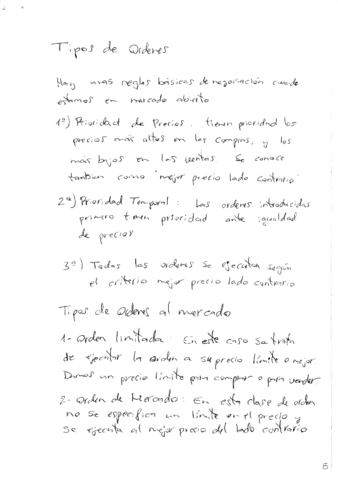 Tipos de Ordenes
Hay unas reglas básicas de negociación cuando
estamos en mercado abierto
1º) Prioridad de Precios. tienen prioridad los
precios más altos en las compras, y los
más bajos en las ventas. Se conoce
tambien como "mejor precio lado contrario"
2ª) Prioridad Temporal: Las ordenes introducidas
primero tienen prioridad ante igualdad
de precios
3º) Todas las ordenes se ejecutan según
el criterio mejor precio lado contrario
Tipos de Ordenes al mercado
1- Orden limitada: En este caso se trata
de ejecutar la orden a su precio límite o mejor
Damos un precio límite para comprar o para vender
2- Orden de Mercado: En esta clase de orden
no se especifica un límite en el precio y
se ejecuta al mejor precio del lado contrario